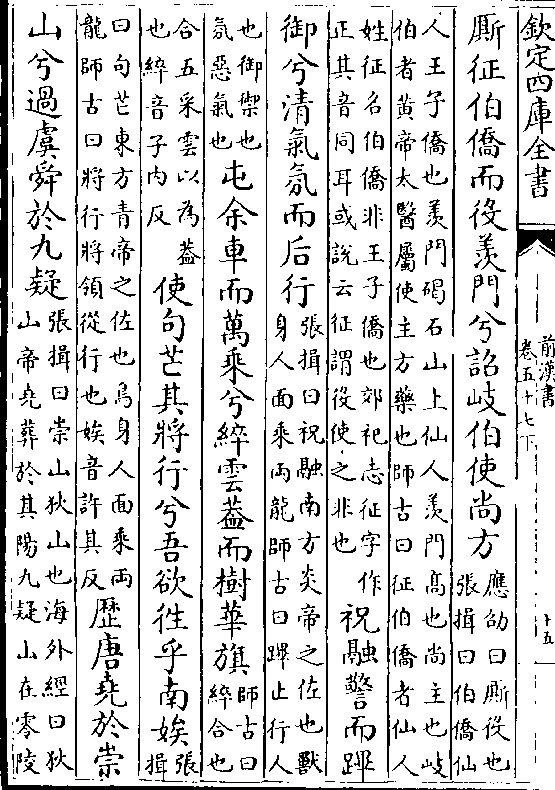 欽定四庫全書
前漢書
卷五十七下
十五
厮征伯僑而役羡門兮詔岐伯使尚方應劭曰厮役也張揖曰伯僑仙
人王子僑也羡門碣石山上仙人羡門髙也尚主也岐伯者黄帝太醫屬使主方藥也師古曰征伯僑者仙人
姓征名伯僑非王子僑也郊祀志征字作正其音同耳或說云征謂役使之非也祝融警而蹕
御兮清氣氛而后行張揖曰祝融南方炎帝之佐也獸身人面乘兩龍師古曰蹕止行人
也御禦也氛惡氣也屯余車而萬乘兮綷雲葢而樹華旗師古曰綷合也
合五采雲以為葢也綷音子内反使句芒其將行兮吾欲徃乎南娭張揖
曰句芒東方青帝之佐也鳥身人面乘兩龍師古曰將行將領從行也娭音許其反歴唐堯於崇
山兮過虞舜於九疑張揖曰崇山狄山也海外經曰狄山帝堯葬於其陽九疑山在零陵